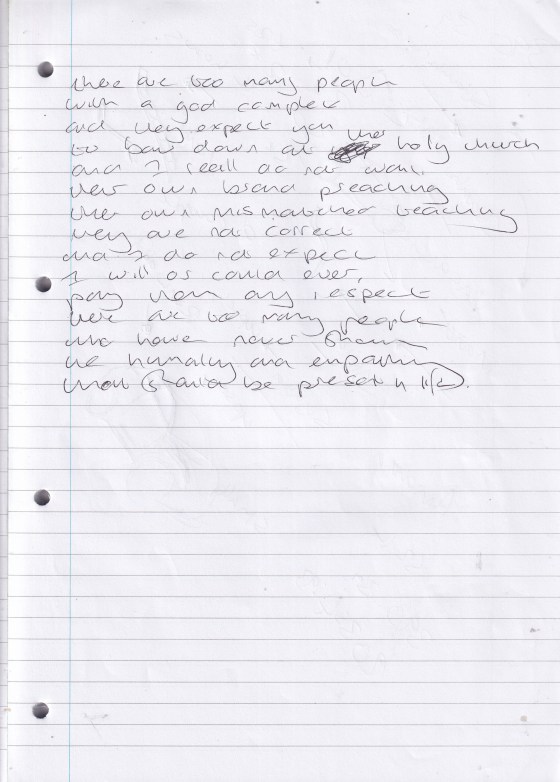 there are too many people
with a god complex
and they expect you
to bow down at their holy church
and I still do not want
their own brand preaching
their own mismatched teaching
they are not correct
and I do not expect
I will or could ever,
pay them any respect
there are too many people
who have never shown
the humanity and empathy
that should be present in life.